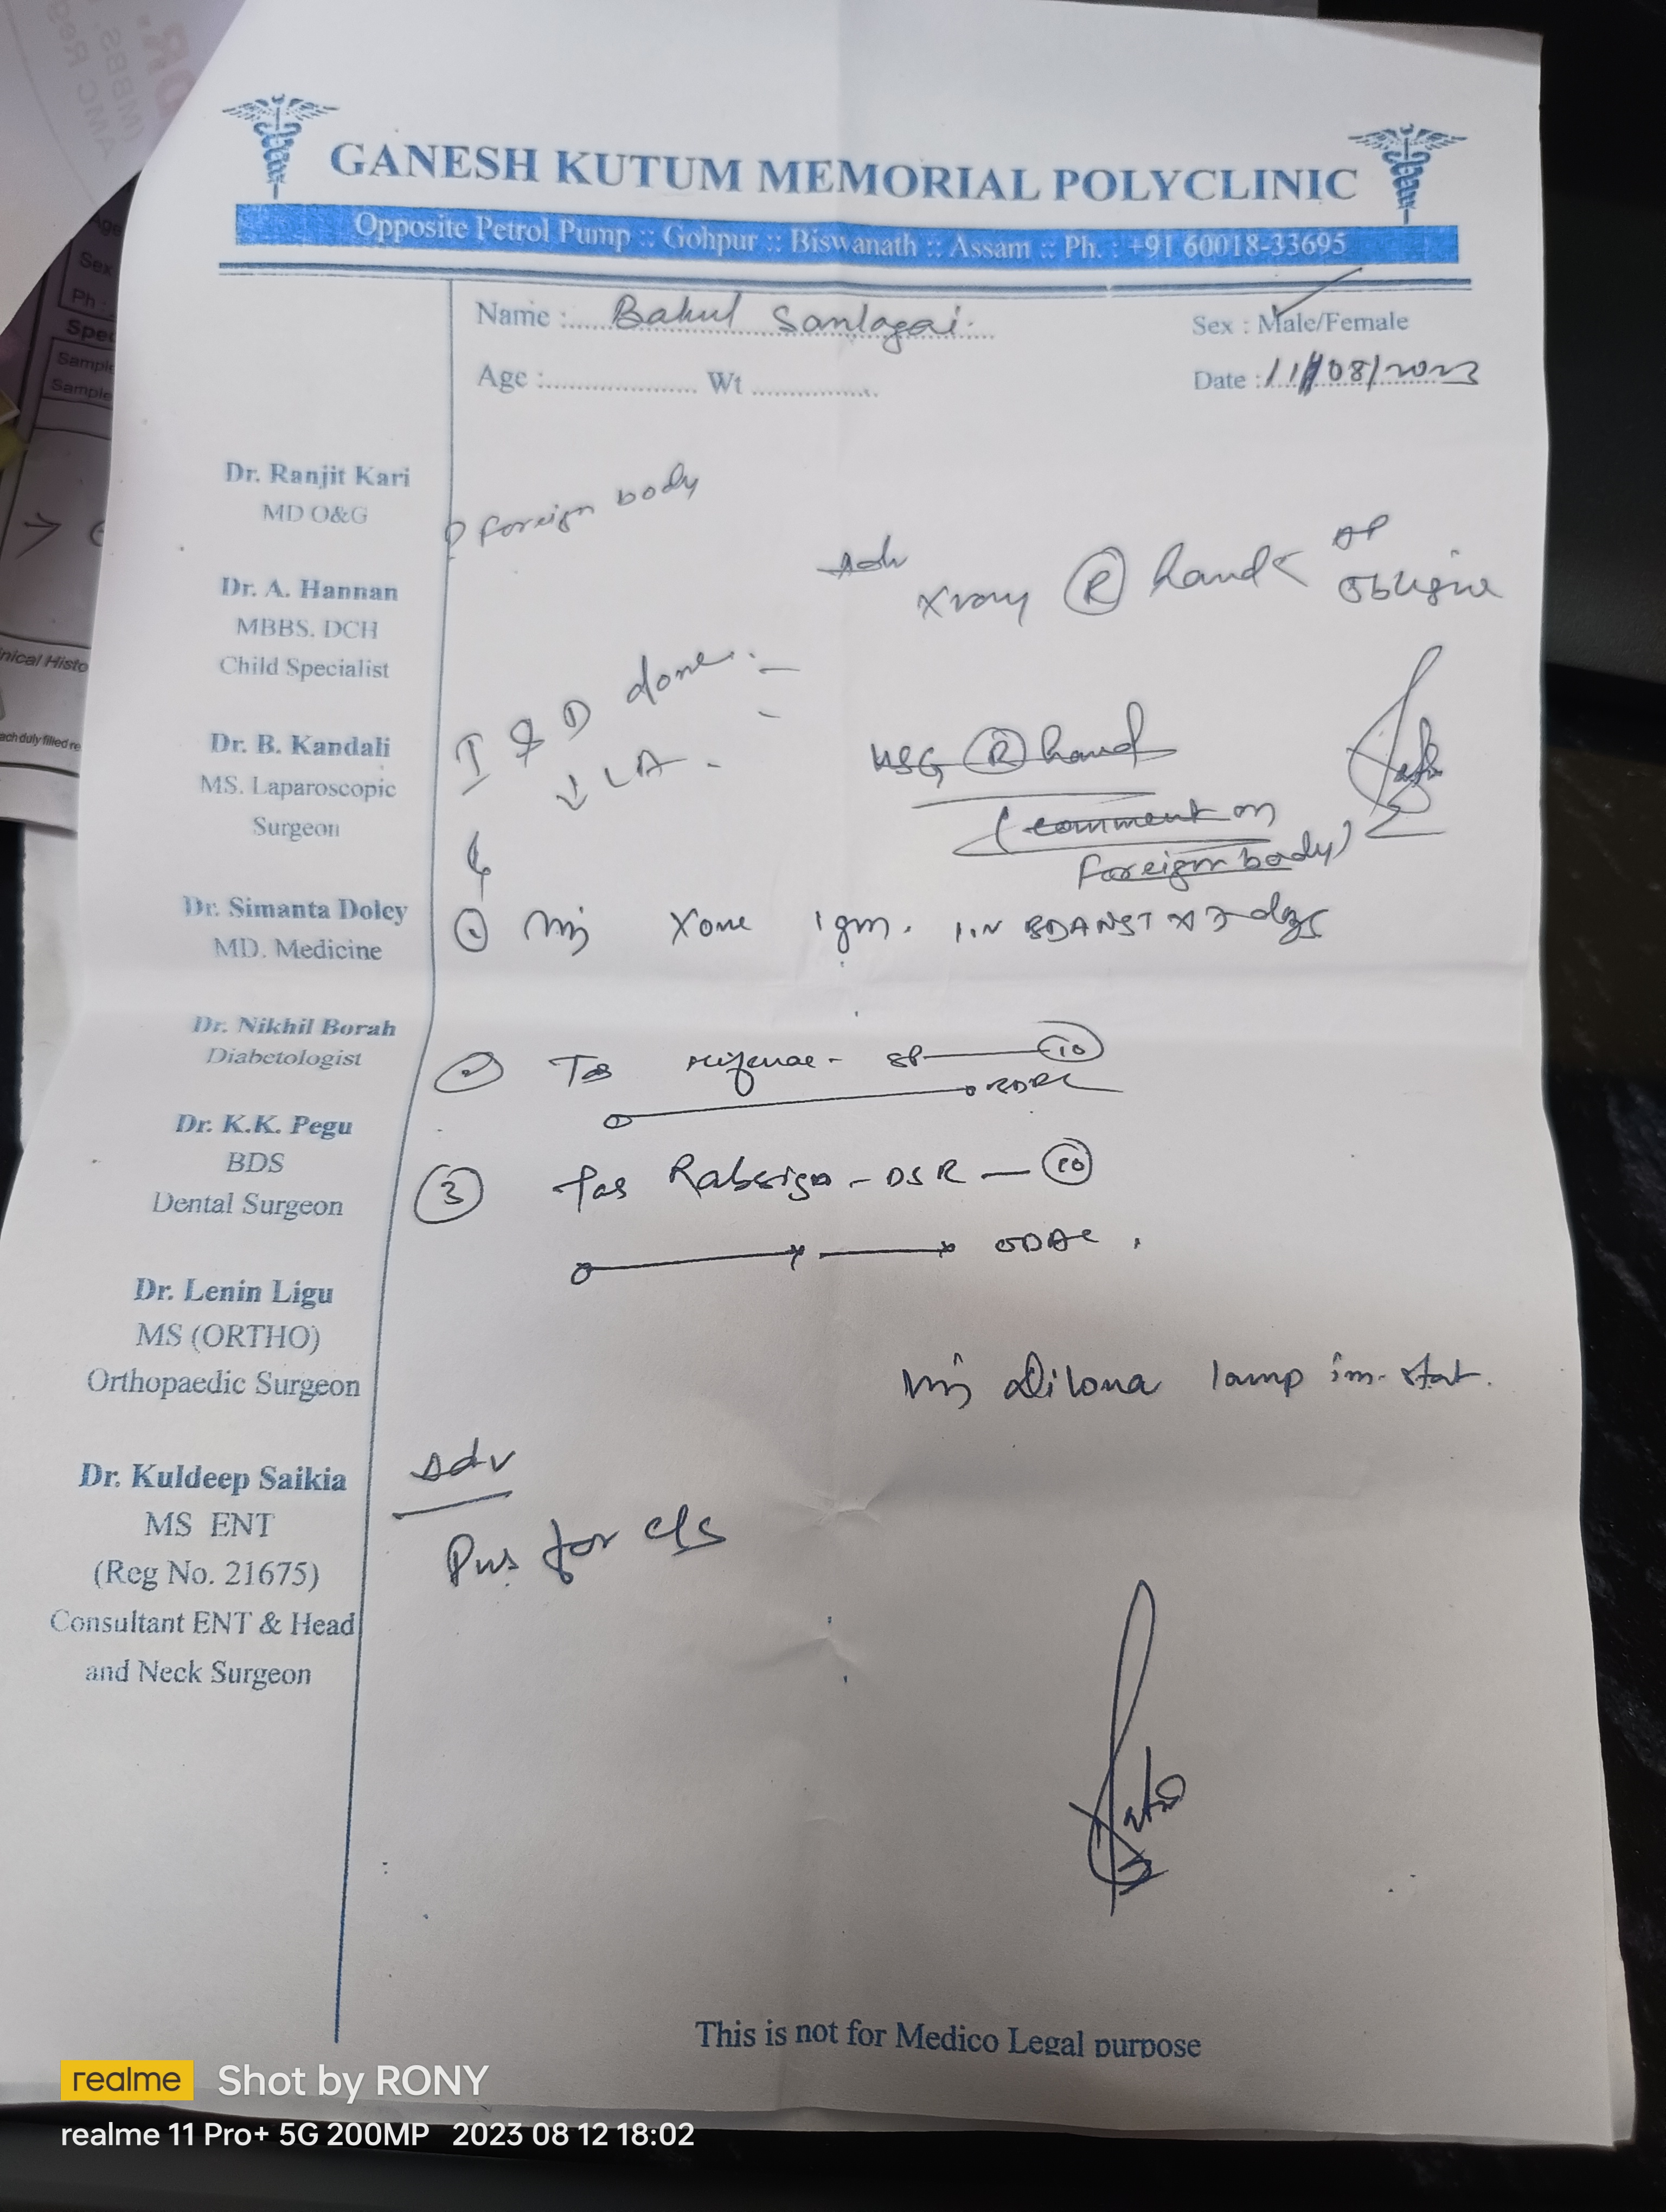 GANESH KUTUM MEMORIAL POLYCLINIC
Opposite Petrol Pump :: Gohpur :: Biswanath :: Assam :: Ph. : +91 60018-33695
Name : Bakul
Sex : Male/Female
Age : Wt
Date : 11/08/2023
Dr. Ranjit Kari
MD O&G
Dr. A. Hannan
MBBS. DCH
Child Specialist
Dr. B. Kandali
MS. Laparoscopic
Surgeon
Dr. Simanta Doley
MD. Medicine
Dr. Nikhil Borah
Diabetologist
Dr. K.K. Pegu
BDS
Dental Surgeon
Dr. Lenin Ligu
MS (ORTHO)
Orthopaedic Surgeon
Dr. Kuldeep Saikia
MS ENT
(Reg No. 21675)
Consultant ENT & Head
and Neck Surgeon
? foreign body
Adv
Xray (R) hand < AP
oblique
I & D done
↓ LA
USG (R) hand
(comment on
foreign body)
Inj Xone 1gm. days
② Tab SP — 10
③ Tab DSR — 10
Inj 1amp im stat.
Adv
Pus for c/s
This is not for Medico Legal purpose
Age
Sex
Ph :
Sample
Sample
realme Shot by RONY
realme 11 Pro+ 5G 200MP 2023 08 12 18:02